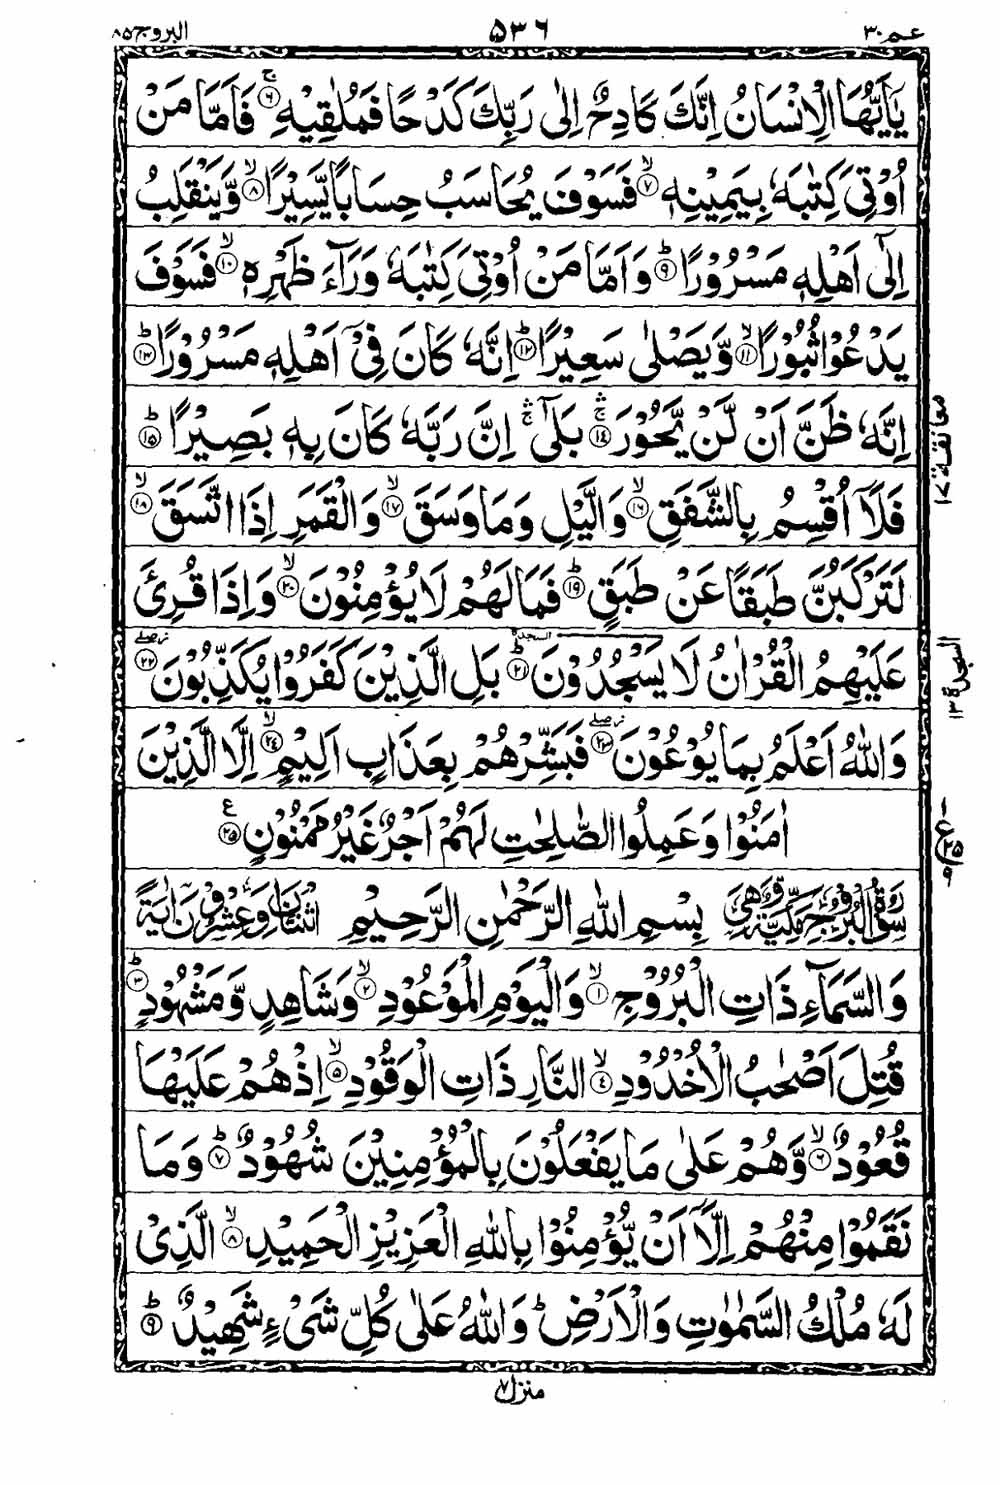 عمر ٣٠
٥٣٦
البروج ٨٥
يٰۤاَيُّهَا الْاِنْسَانُ اِنَّكَ كَادِحٌ اِلٰى رَبِّكَ كَدْحًا فَمُلٰقِيْهِ ۚ‏﴿۶﴾ فَاَمَّا مَنْ
اُوْتِىَ كِتٰبَهٗ بِيَمِيْنِهٖۙ‏﴿۷﴾ فَسَوْفَ يُحَاسَبُ حِسَابًا يَّسِيْرًاۙ‏﴿۸﴾ وَّيَنْقَلِبُ
اِلٰٓى اَهْلِهٖ مَسْرُوْرًاؕ‏﴿۹﴾ وَاَمَّا مَنْ اُوْتِىَ كِتٰبَهٗ وَرَآءَ ظَهْرِهٖۙ‏﴿۱۰﴾ فَسَوْفَ
يَدْعُوْا ثُبُوْرًاۙ‏﴿۱۱﴾ وَّيَصْلٰى سَعِيْرًاؕ‏﴿۱۲﴾ اِنَّهٗ كَانَ فِىْۤ اَهْلِهٖ مَسْرُوْرًاؕ‏﴿۱۳﴾
اِنَّهٗ ظَنَّ اَنْ لَّنْ يَّحُوْرَۛۚ‏﴿۱۴﴾ بَلٰٓىۛۚ اِنَّ رَبَّهٗ كَانَ بِهٖ بَصِيْرًاؕ‏﴿۱۵﴾
معانقة ١٧
فَلَاۤ اُقْسِمُ بِالشَّفَقِۙ‏﴿۱۶﴾ وَالَّيْلِ وَمَا وَسَقَۙ‏﴿۱۷﴾ وَالْقَمَرِ اِذَا اتَّسَقَۙ‏﴿۱۸﴾
لَتَرْكَبُنَّ طَبَقًا عَنْ طَبَقٍؕ‏﴿۱۹﴾ فَمَا لَهُمْ لَا يُؤْمِنُوْنَۙ‏﴿۲۰﴾ وَاِذَا قُرِئَ
السجدة
عَلَيْهِمُ الْقُرْاٰنُ لَا يَسْجُدُوْنَؕ‏﴿۲۱﴾ بَلِ الَّذِيْنَ كَفَرُوْا يُكَذِّبُوْنَ‏﴿۲۲﴾
السجدة ١٣
وَاللّٰهُ اَعْلَمُ بِمَا يُوْعُوْنَ‏﴿۲۳﴾ فَبَشِّرْهُمْ بِعَذَابٍ اَلِيْمٍۙ‏﴿۲۴﴾ اِلَّا الَّذِيْنَ
اٰمَنُوْا وَعَمِلُوا الصّٰلِحٰتِ لَهُمْ اَجْرٌ غَيْرُ مَمْنُوْنٍ‏﴿۲۵﴾ ع
ع ٢٥ ٩
سُوْرَةُ الْبُرُوْجِ مَكِّيَّةٌ وَّهِىَ بِسْمِ اللّٰهِ الرَّحْمٰنِ الرَّحِيْمِ اثْنَتَانِ وَعِشْرُوْنَ اٰيَةً
وَالسَّمَآءِ ذَاتِ الْبُرُوْجِۙ‏﴿۱﴾ وَالْيَوْمِ الْمَوْعُوْدِۙ‏﴿۲﴾ وَشَاهِدٍ وَّمَشْهُوْدٍؕ‏﴿۳﴾
قُتِلَ اَصْحٰبُ الْاُخْدُوْدِۙ‏﴿۴﴾ النَّارِ ذَاتِ الْوَقُوْدِۙ‏﴿۵﴾ اِذْ هُمْ عَلَيْهَا
قُعُوْدٌۙ‏﴿۶﴾ وَّهُمْ عَلٰى مَا يَفْعَلُوْنَ بِالْمُؤْمِنِيْنَ شُهُوْدٌؕ‏﴿۷﴾ وَمَا
نَقَمُوْا مِنْهُمْ اِلَّاۤ اَنْ يُّؤْمِنُوْا بِاللّٰهِ الْعَزِيْزِ الْحَمِيْدِۙ‏﴿۸﴾ الَّذِىْ
لَهٗ مُلْكُ السَّمٰوٰتِ وَالْاَرْضِؕ وَاللّٰهُ عَلٰى كُلِّ شَىْءٍ شَهِيْدٌؕ‏﴿۹﴾
منزل ٧